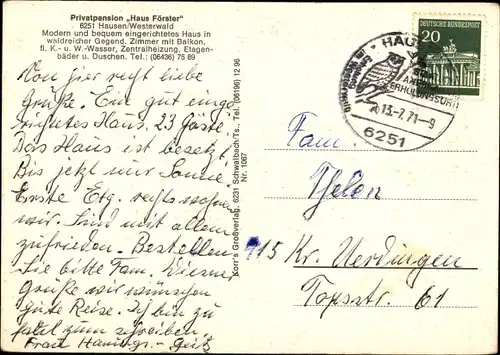 Privatpension „Haus Förster"
6251 Hausen/Westerwald
Modern und bequem eingerichtetes Haus in
waldreicher Gegend. Zimmer mit Balkon,
fl. K.- u. W.-Wasser, Zentralheizung, Etagen-
bäder u. Duschen. Tel.: (06436) 75 89
Von hier recht liebe
Grüße. Ein gut einge
richtetes Haus. 23 Gäste.
Das Haus ist besetzt.
Bis jetzt nur Sonne
Erste Etg. rechts wohnen
wir. Sind mit allem
zufrieden. Bestellen
Sie bitte Fam.
Grüße wir wünschen
gute Reise. Ich bin zu
faul zum schreiben.
Frau
Korr's Großverlag, 6231 Schwalbach/Ts., Tel. (06196) 12 96
Nr. 1067
DEUTSCHE BUNDESPOST
20
HAUS
ERHOLUNGSORT
13.-7.71-9
6251
Fam.
Thelen
415 Kr. Uerdingen
Topsstr. 61